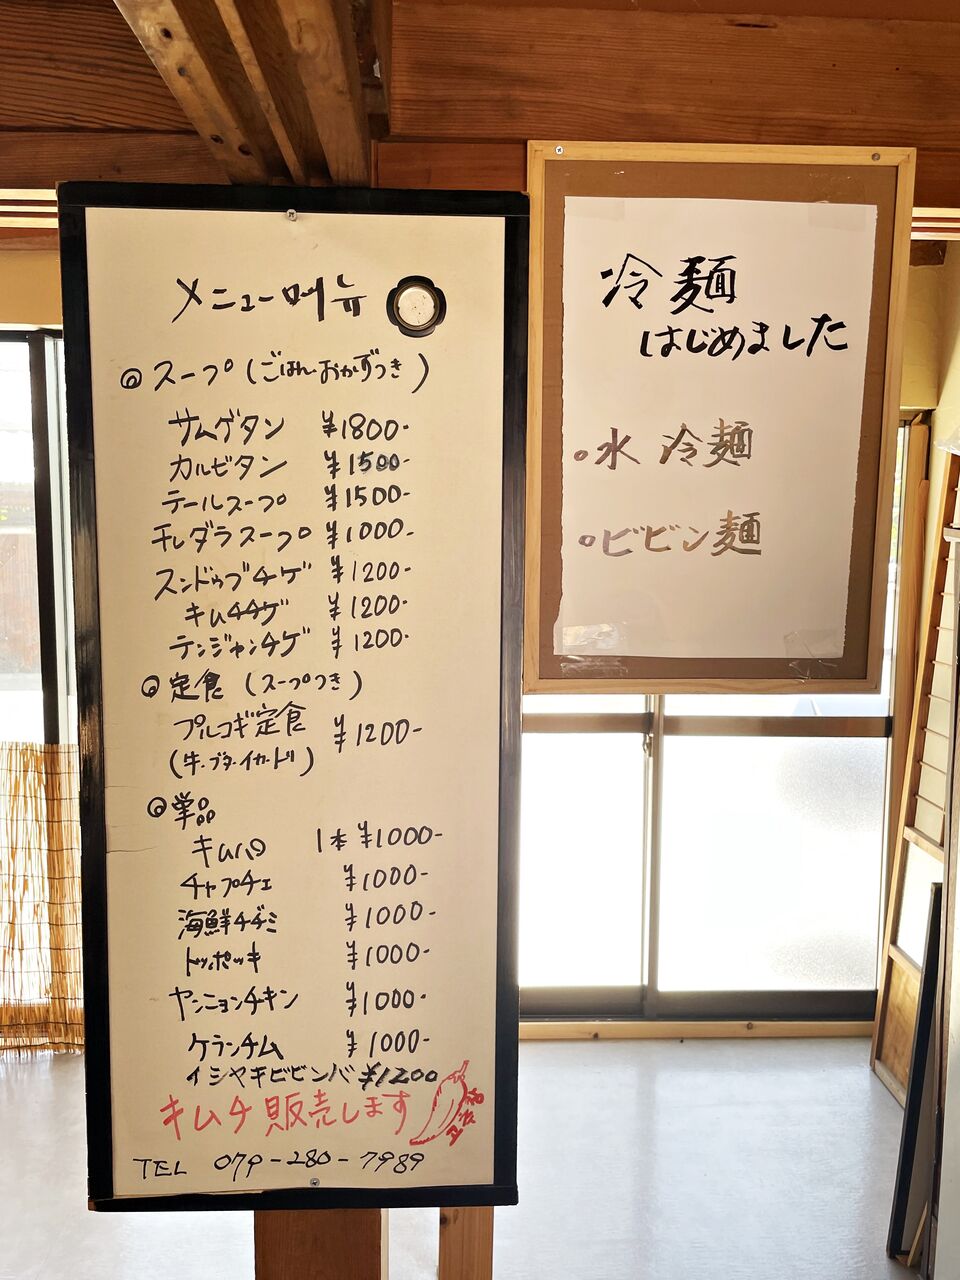 メニュー 메뉴
◎スープ(ごはん・おかずつき)
サムゲタン ¥1800-
カルビタン ¥1500-
テールスープ ¥1500-
干しダラスープ ¥1000-
スンドゥブチゲ ¥1200-
キムチチゲ ¥1200-
テンジャンチゲ ¥1200-
◎定食(スープつき)
プルコギ定食 ¥1200-
(牛・ブタ・イカ・トリ)
◎単品
キムパ 1本 ¥1000-
チャプチェ ¥1000-
海鮮チヂミ ¥1000-
トッポッキ ¥1000-
ヤンニョンチキン ¥1000-
ケランチム ¥1000-
イシヤキビビンバ ¥1200
キムチ販売します
TEL 079-280-7989
冷麺
はじめました
・水 冷麺
・ビビン麺